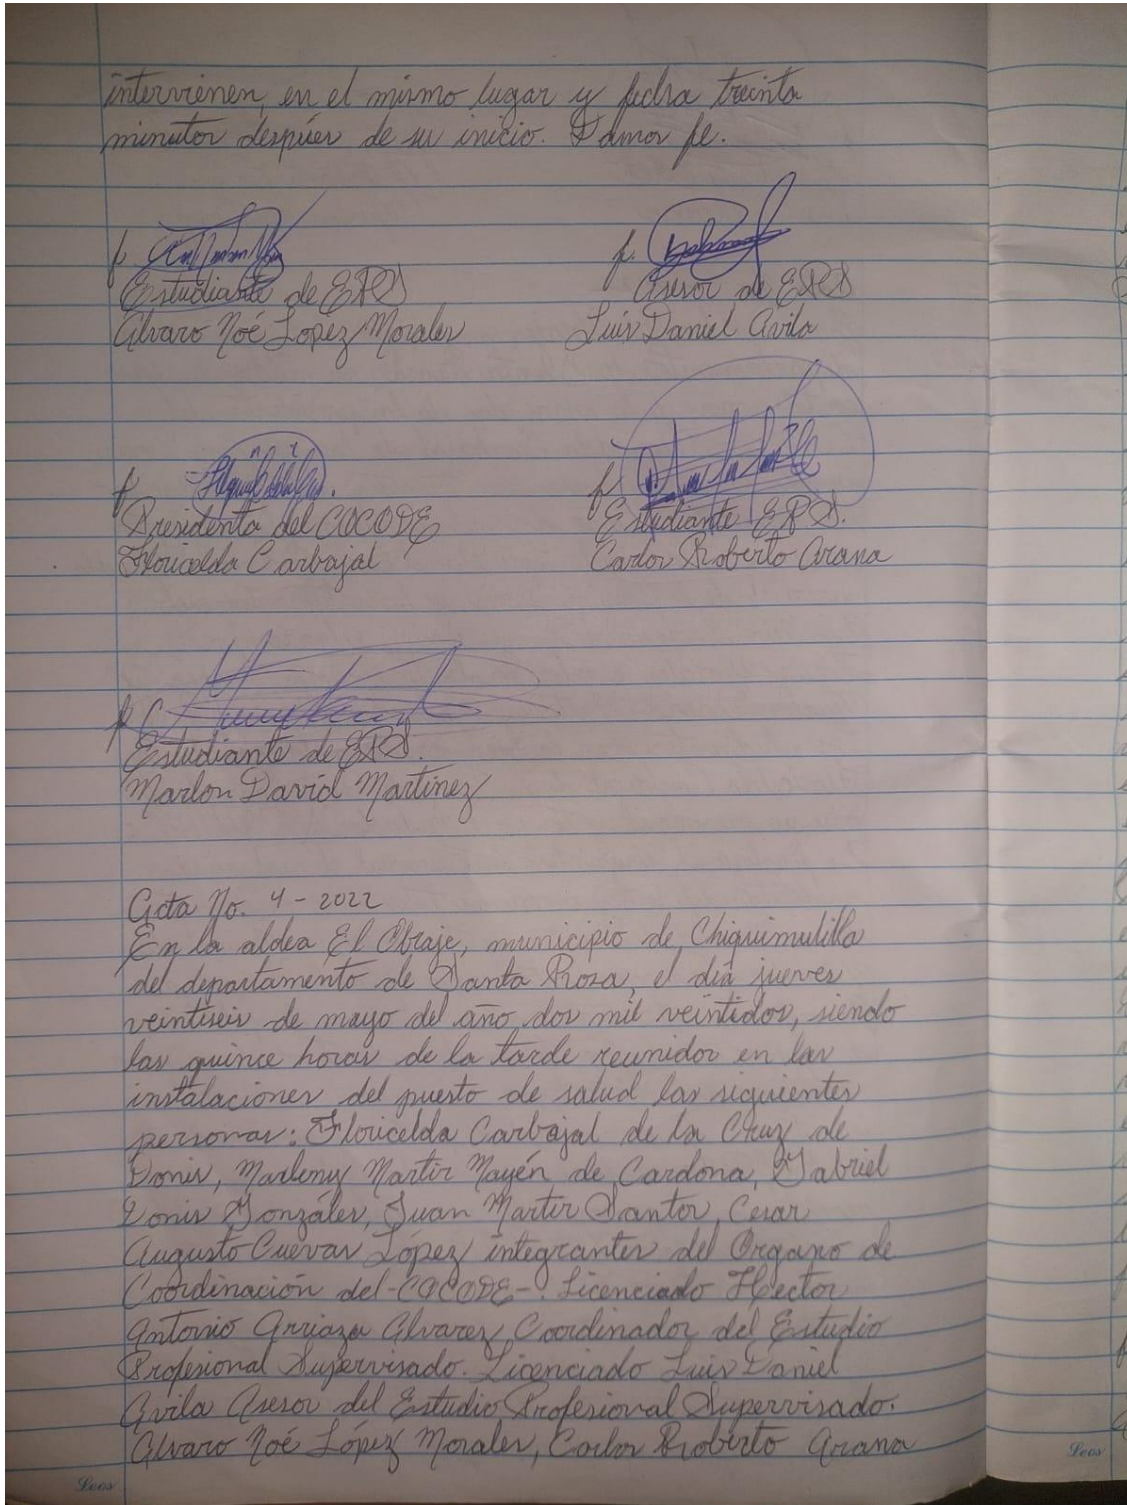 intervienen, en el mismo lugar y fecha treinta
minutos despúes de su inicio. Damos fe.
f. f.
Estudiante de EPS Asesor de EPS
Alvaro Noé López Morales Luis Daniel Avila
f. f.
Presidenta del COCODE Estudiante EPS.
Floricelda Carbajal Carlos Roberto Arana
f.
Estudiante de EPS.
Marlon David Martinez
Acta No. 4-2022
En la aldea El Obraje, municipio de Chiquimulilla
del departamento de Santa Rosa, el día jueves
veintiseis de mayo del año dos mil veintidos, siendo
las quince horas de la tarde reunidos en las
instalaciones del puesto de salud las siguientes
personas: Floricelda Carbajal de la Cruz de
Donis, Marleny Martir Mayén de Cardona, Gabriel
Donis Gonzáles, Juan Martir Santos, Cesar
Augusto Cuevas López integrantes del Organo de
Coordinación del -COCODE-. Licenciado Hector
Antonio Arriaza Alvarez, Coordinador del Estudio
Profesional Supervisado. Licenciado Luis Daniel
Avila Asesor del Estudio Profesional Supervisado.
Alvaro Noé López Morales, Carlos Roberto Arana
Leos Leos